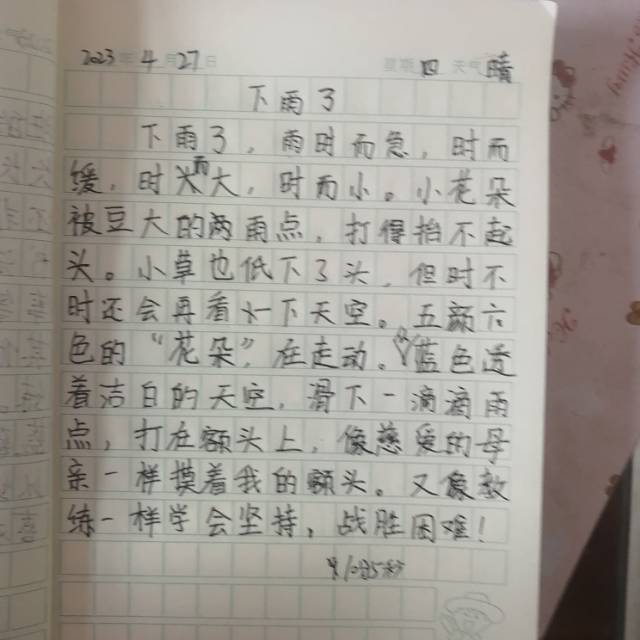 2023年4月27日 星期四 天气晴
下雨了
下雨了，雨时而急，时而
缓，时而大，时而小。小花朵
被豆大的两雨点，打得抬不起
头。小草也低下了头，但时不
时还会再看一下天空。五颜六
色的“花朵”在走动。蓝色透
着洁白的天空，滑下一滴滴雨
点，打在额头上，像慈爱的母
亲一样摸着我的额头。又像教
练一样学会坚持，战胜困难！